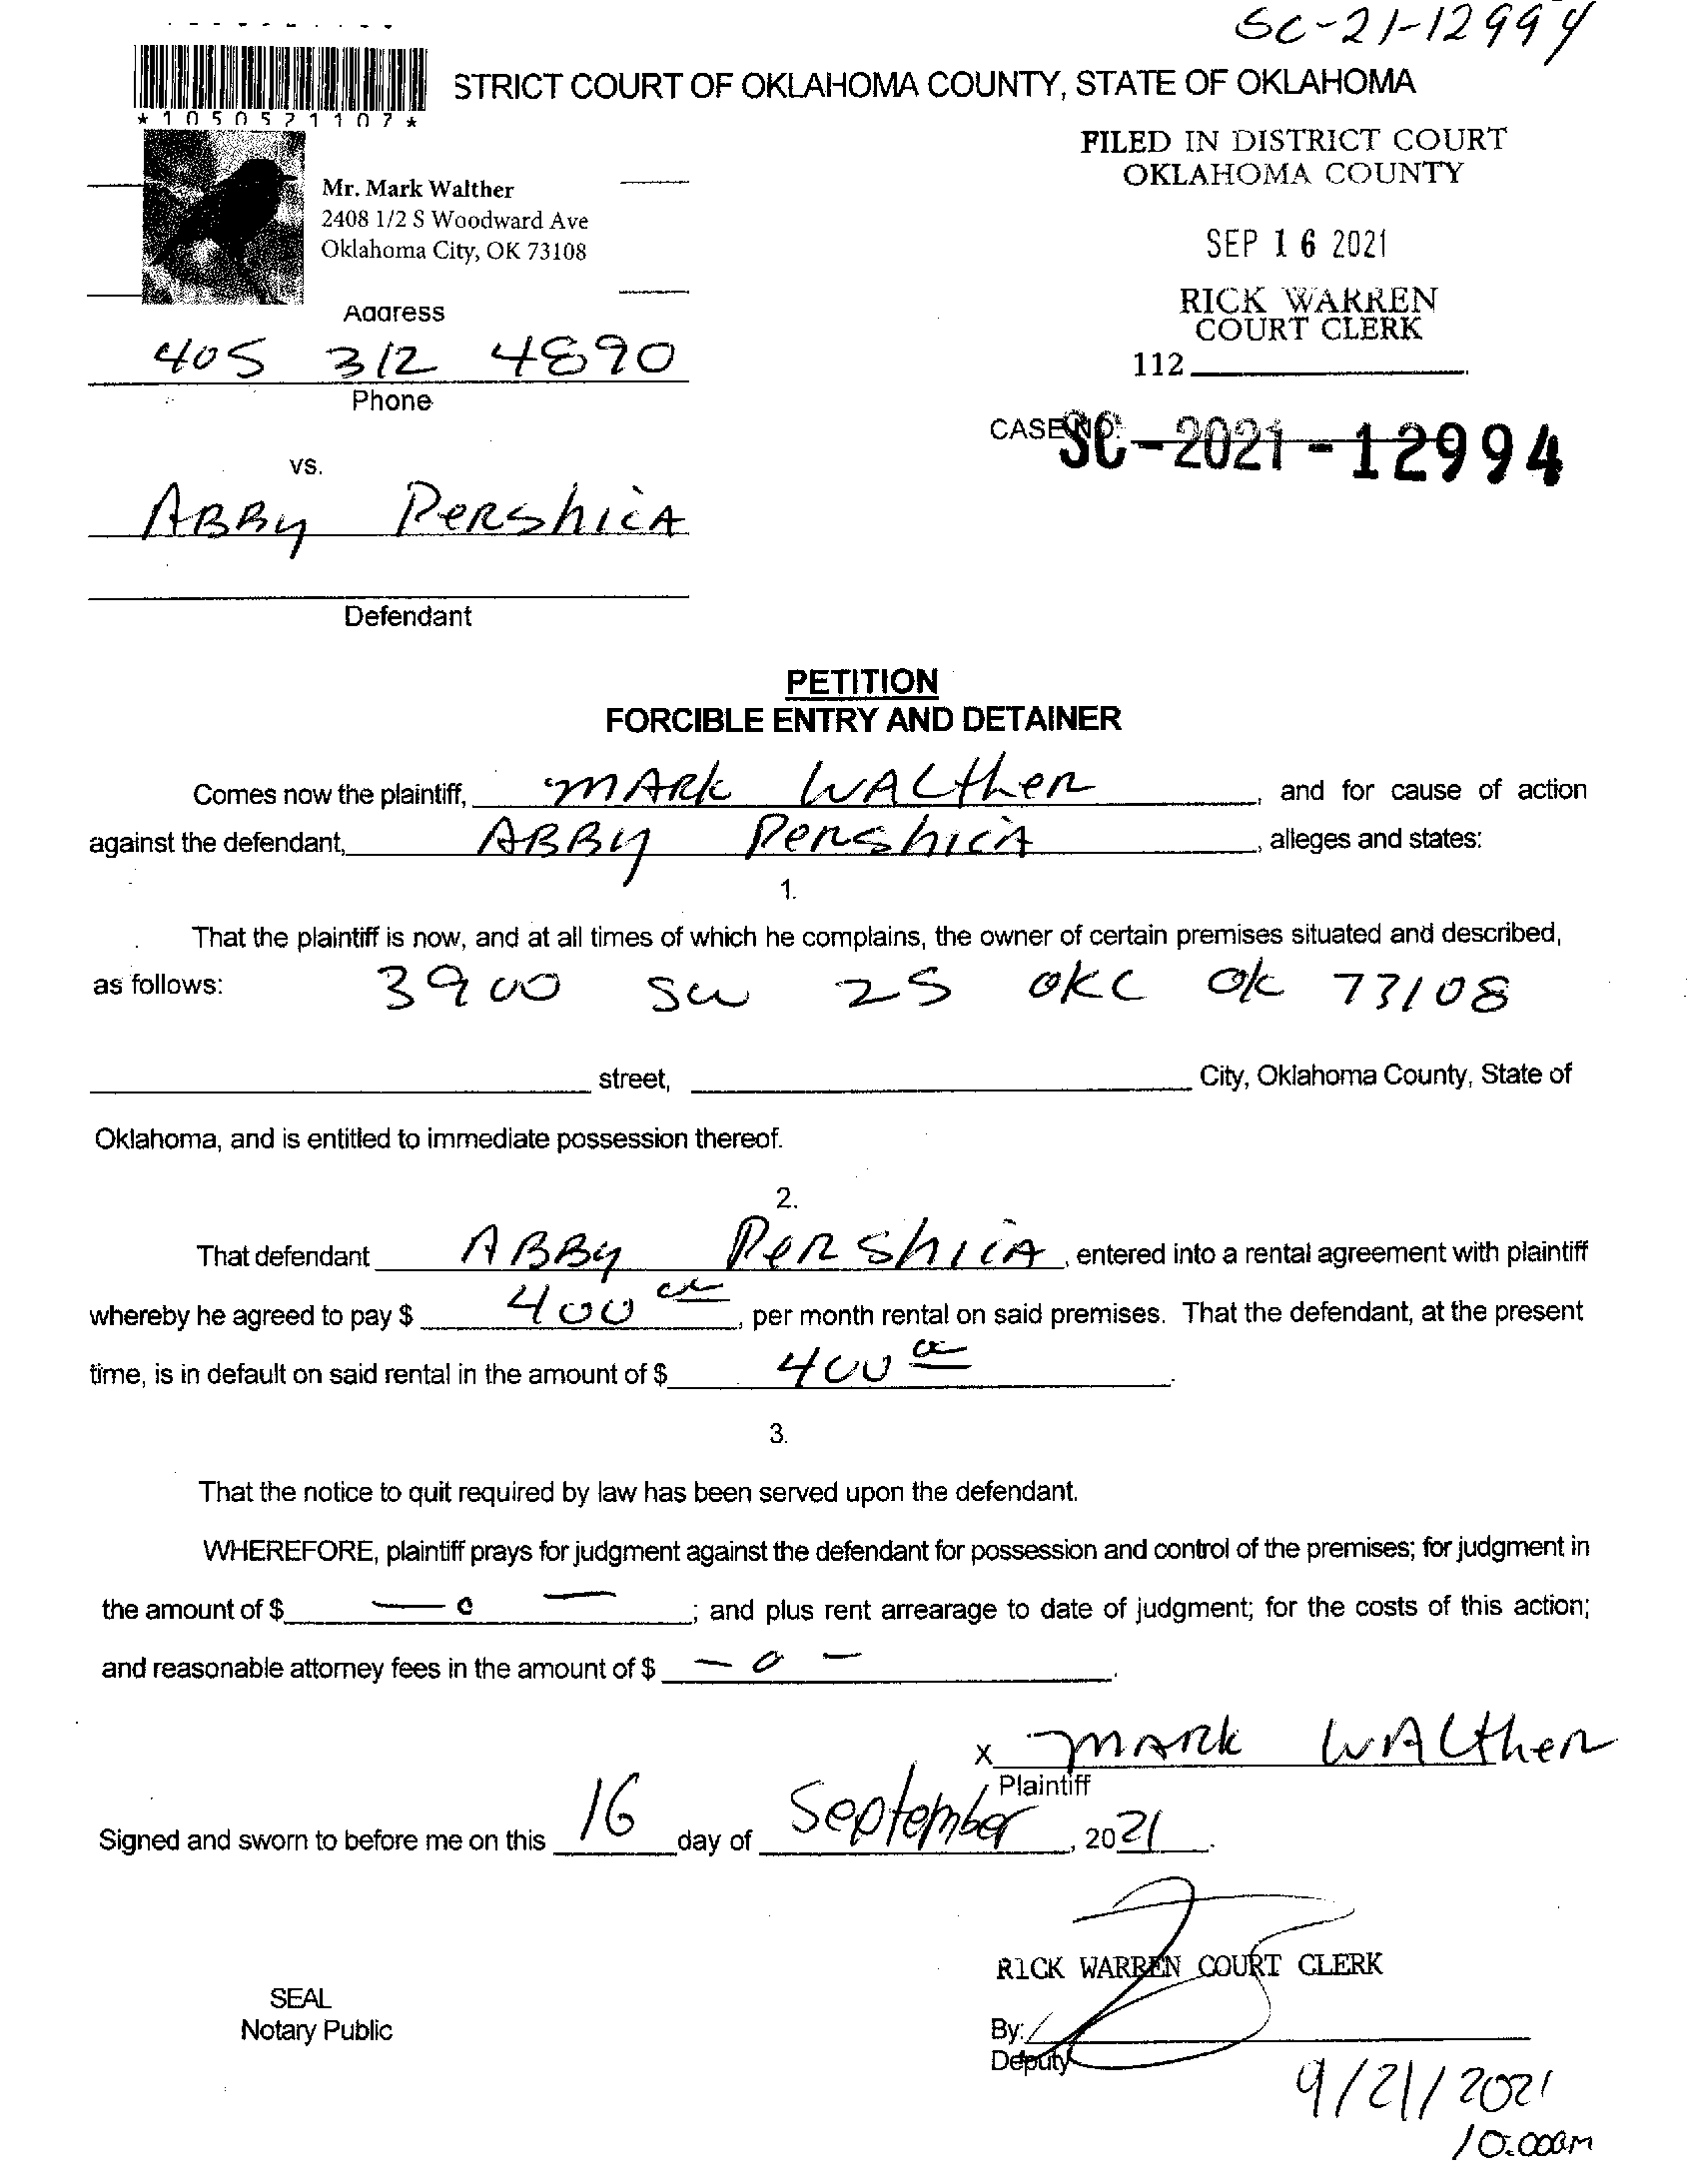 SC-21-12994
STRICT COURT OF OKLAHOMA COUNTY, STATE OF OKLAHOMA
*1050521107*
FILED IN DISTRICT COURT
OKLAHOMA COUNTY
Mr. Mark Walther
2408 1/2 S Woodward Ave
Oklahoma City, OK 73108
SEP 16 2021
RICK WARREN
COURT CLERK
Address
405 312 4890
112
Phone
CASE NO. SC-2021-12994
vs.
ABBy PeRshicA
Defendant
PETITION
FORCIBLE ENTRY AND DETAINER
Comes now the plaintiff, mARk WALther, and for cause of action
against the defendant, ABBy PeRshicA, alleges and states:
1.
That the plaintiff is now, and at all times of which he complains, the owner of certain premises situated and described,
as follows: 3900 SW 25 OKC OK 73108
street, City, Oklahoma County, State of
Oklahoma, and is entitled to immediate possession thereof.
2.
That defendant ABBy PeRshicA, entered into a rental agreement with plaintiff
whereby he agreed to pay $ 400 00, per month rental on said premises. That the defendant, at the present
time, is in default on said rental in the amount of $ 400 00.
3.
That the notice to quit required by law has been served upon the defendant.
WHEREFORE, plaintiff prays for judgment against the defendant for possession and control of the premises; for judgment in
the amount of $ — 0 —; and plus rent arrearage to date of judgment; for the costs of this action;
and reasonable attorney fees in the amount of $ — 0 —.
x mARk WALther
Plaintiff
Signed and sworn to before me on this 16 day of September, 2021.
RICK WARREN COURT CLERK
SEAL
Notary Public
By:
Deputy
9/21/2021
10:00am